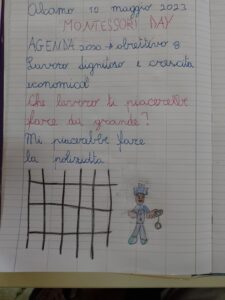 Alcamo 10 maggio 2023
MONTESSORI DAY
AGENDA 2030 → obiettivo 8
Lavoro dignitoso e crescita
economica
Che lavoro ti piacerebbe
fare da grande?
Mi piacerebbe fare
la poliziotta